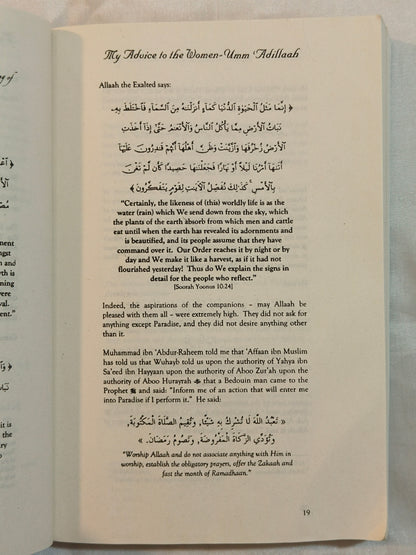 My Advice to the Women-Umm 'Abdillaah
Allaah the Exalted says:
﴿ إِنَّمَا مَثَلُ الْحَيَوٰةِ الدُّنْيَا كَمَآءٍ أَنزَلْنَٰهُ مِنَ السَّمَآءِ فَاخْتَلَطَ بِهِۦ
نَبَاتُ الْأَرْضِ مِمَّا يَأْكُلُ النَّاسُ وَالْأَنْعَٰمُ حَتَّىٰٓ إِذَآ أَخَذَتِ
الْأَرْضُ زُخْرُفَهَا وَازَّيَّنَتْ وَظَنَّ أَهْلُهَآ أَنَّهُمْ قَٰدِرُونَ عَلَيْهَآ
أَتَىٰهَآ أَمْرُنَا لَيْلًا أَوْ نَهَارًا فَجَعَلْنَٰهَا حَصِيدًا كَأَن لَّمْ تَغْنَ
بِالْأَمْسِ ۚ كَذَٰلِكَ نُفَصِّلُ الْءَايَٰتِ لِقَوْمٍ يَتَفَكَّرُونَ ﴾
"Certainly, the likeness of (this) worldly life is as the
water (rain) which We send down from the sky, which
the plants of the earth absorb from which men and cattle
eat until when the earth has revealed its adornments and
is beautified, and its people assume that they have
command over it. Our Order reaches it by night or by
day and We make it like a harvest, as if it had not
flourished yesterday! Thus do We explain the signs in
detail for the people who reflect."
[Soorah Yoonus 10:24]
Indeed, the aspirations of the companions – may Allaah be
pleased with them all – were extremely high. They did not ask for
anything except Paradise, and they did not desire anything other
than it.
Muhammad ibn 'Abdur-Raheem told me that 'Affaan ibn Muslim
has told us that Wuhayb told us upon the authority of Yahya ibn
Sa'eed ibn Hayyaan upon the authority of Aboo Zur'ah upon the
authority of Aboo Hurayrah that a Bedouin man came to the
Prophet ﷺ and said: "Inform me of an action that will enter me
into Paradise if I perform it." He said:
« تَعْبُدُ اللهَ لَا تُشْرِكُ بِهِ شَيْئًا, وَتُقِيمُ الصَّلَاةَ الْمَكْتُوبَةَ,
وَتُؤَدِّي الزَّكَاةَ الْمَفْرُوضَةَ, وَتَصُومُ رَمَضَانَ. »
"Worship Allaah and do not associate anything with Him in
worship, establish the obligatory prayers, offer the Zakaah and
fast the month of Ramadhaan."
19